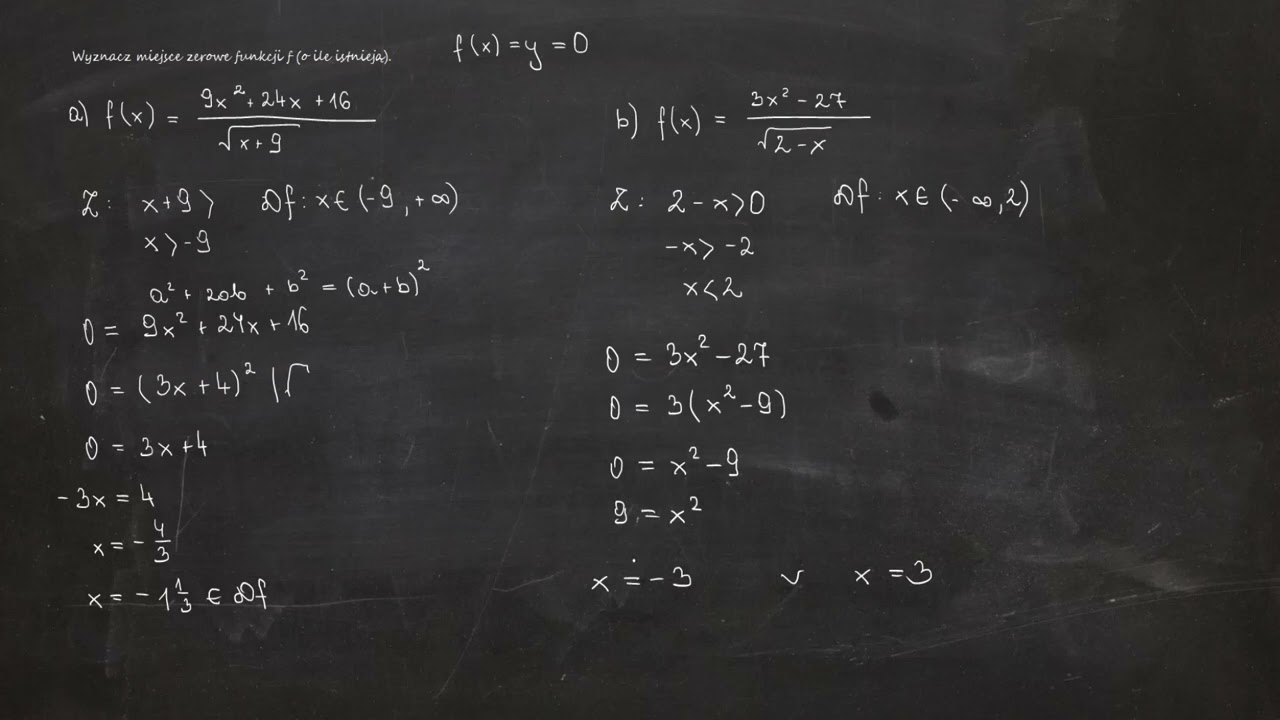 Wyznacz miejsce zerowe funkcji f (o ile istnieją).
f(x) = y = 0
a) f(x) = (9x² + 24x + 16) / √(x+9)
Z: x+9 >   Df: x ∈ (-9, +∞)
x > -9
a² + 2ab + b² = (a+b)²
0 = 9x² + 24x + 16
0 = (3x + 4)² |√
0 = 3x + 4
-3x = 4
x = - 4/3
x = - 1 1/3 ∈ Df
b) f(x) = (3x² - 27) / √(2-x)
Z: 2 - x > 0   Df: x ∈ (-∞, 2)
-x > -2
x < 2
0 = 3x² - 27
0 = 3(x² - 9)
0 = x² - 9
9 = x²
x = -3   ∨   x = 3